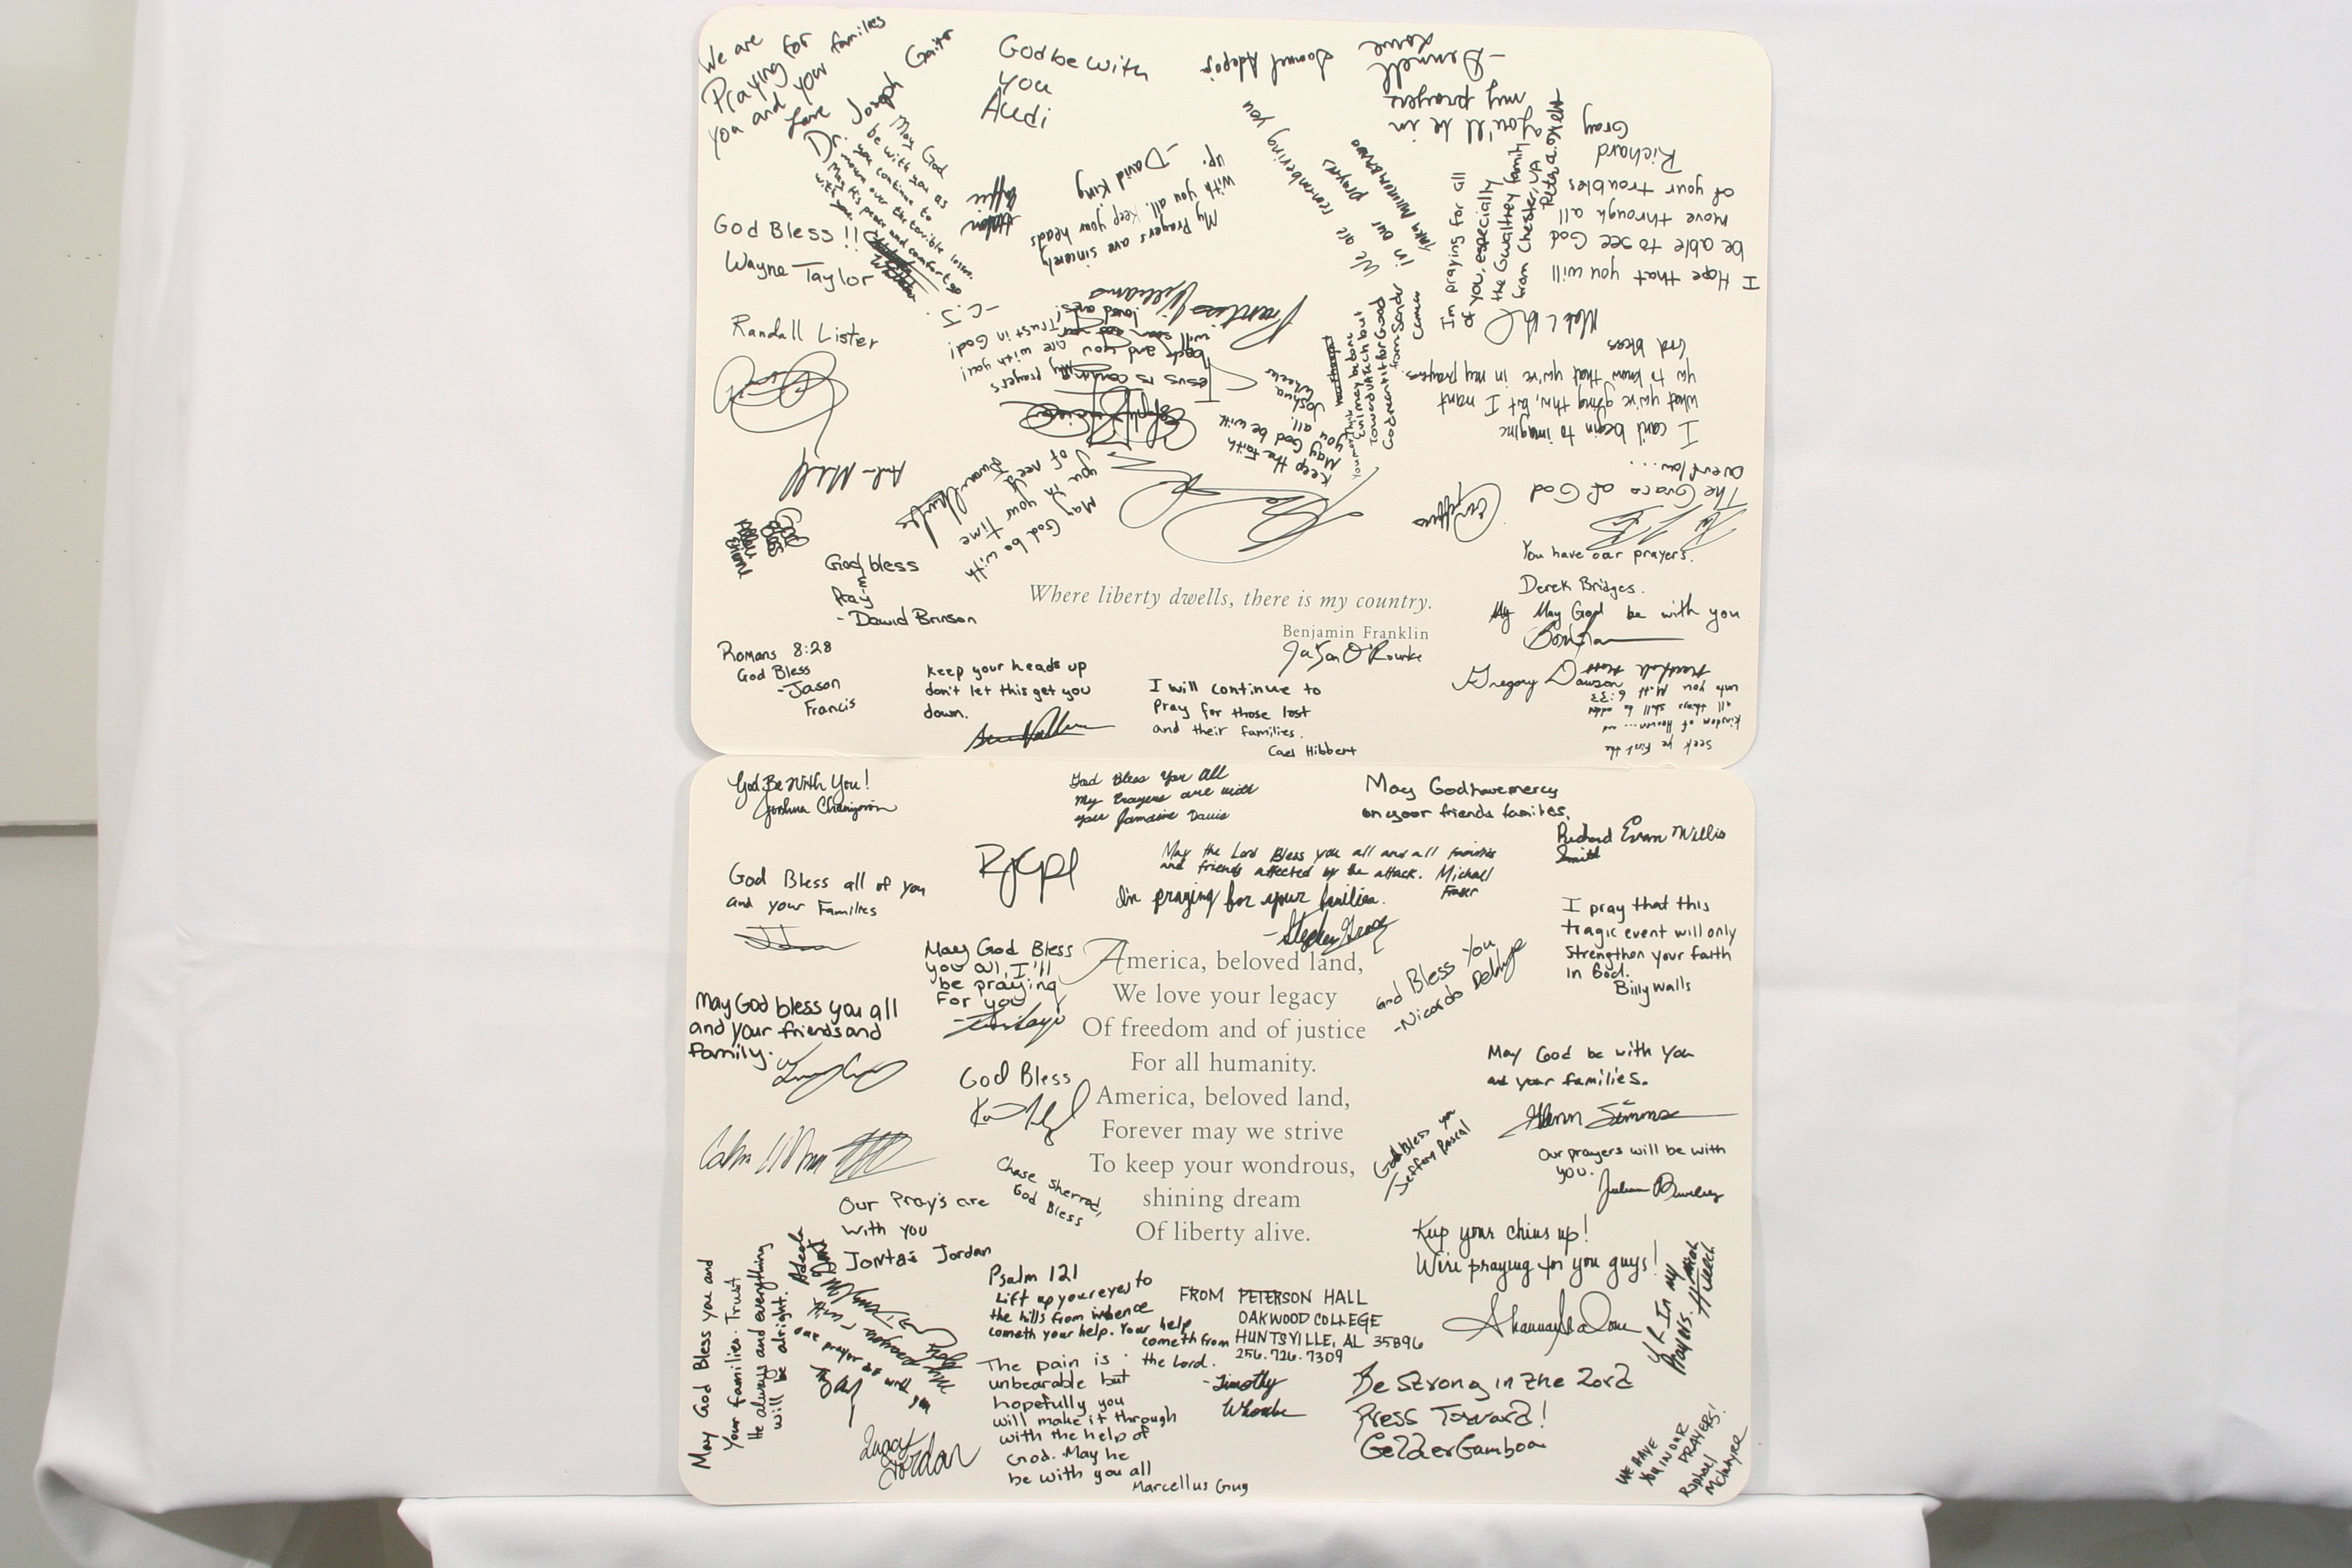 We are
Praying for
you and your families
Love Joseph Gaitor
God be with
you
Audi
Samuel Adepoj
-Dennell
Lowe
you'll be in
my prayers
Dr.
May God
be with you as
you continue to
mourn over the terrible losses.
May His peace and comfort go
with you.
-C.J.
God Bless!!
Wayne Taylor
My Prayers are sincerely
with you all. Keep your heads
up.
-David King
We are remembering you
in our prayers
I'm praying for all
of you, especially
the Gwaltney family
from Chester, VA
I Hope that you will
be able to see God
move through all
of your troubles
Richard
Gray
Randall Lister
Prentiss Williams
Jesus is coming
back and you
will soon see your
loved ones!
My prayers
are with you!
Trust in God!
Keep the faith
May God be with
you all.
Joshua
Wheeler
You may think
evil may be done
toward
God meant it for Good
from Sander
I can't begin to imagine
what you're going thru, but I want
you to know that you're in my prayers.
God bless
The Grace of God
overflow....
May God be with
you in your time
of need
God
Bless
God bless
&
Pray
- David Brinson
Where liberty dwells, there is my country.
Benjamin Franklin
Ja'Son O'Rourke
You have our prayers.
Derek Bridges.
My May God be with you
Gregory Dawson
Seek ye first the
Kingdom of Heaven.... and
all things shall be added
unto you Matt 6:33
Romans 8:28
God Bless
-Jason
Francis
Keep your heads up
don't let this get you
down.
I will continue to
Pray for those lost
and their families.
Cael Hibbert
God Be With You!
Joshua
God Bless You All
My Prayers are with
you Jamaine Davis
May God have mercy
on your friends families.
Richard Evan Willis
Smith
God Bless all of you
and your Families
May the Lord Bless you all and all families
and friends affected by the attack. Michael
Fraser
I'm praying for your families.
- Stephen
I pray that this
tragic event will only
strengthen your faith
in God.
Billy Walls
May God Bless
you all, I'll
be praying
for you
God Bless You
-Nicardo
May God bless you all
and your friends and
family.
America, beloved land,
We love your legacy
Of freedom and of justice
For all humanity.
America, beloved land,
Forever may we strive
To keep your wondrous,
shining dream
Of liberty alive.
God Bless
May God be with you
and your families.
Glenn Simms
God Bless you
Jeffery Rascal
Chase Sherrod,
God Bless
Our prayers will be with
you.
Our Pray's are
with you
Jontas Jordan
Keep your chins up!
We're praying for you guys!
May God Bless you and
Your families. Trust
He always and everything
will be alright.
Psalm 121
Lift up your eyes to
the hills from whence
cometh your help. Your help
cometh from
the Lord.
- Timothy
FROM PETERSON HALL
OAKWOOD COLLEGE
HUNTSVILLE, AL 35896
256.726.7309
UR In my
Prayers.
our prayer is with you
The pain is
unbearable but
hopefully you
will make it through
with the help of
God. May he
be with you all
Marcellus Gug
Jordan
Be Strong in the Lord
Press Forward!
Gelder Gamboa
WE HAVE
YOU IN OUR
PRAYERS!
Raphael
McIntyre